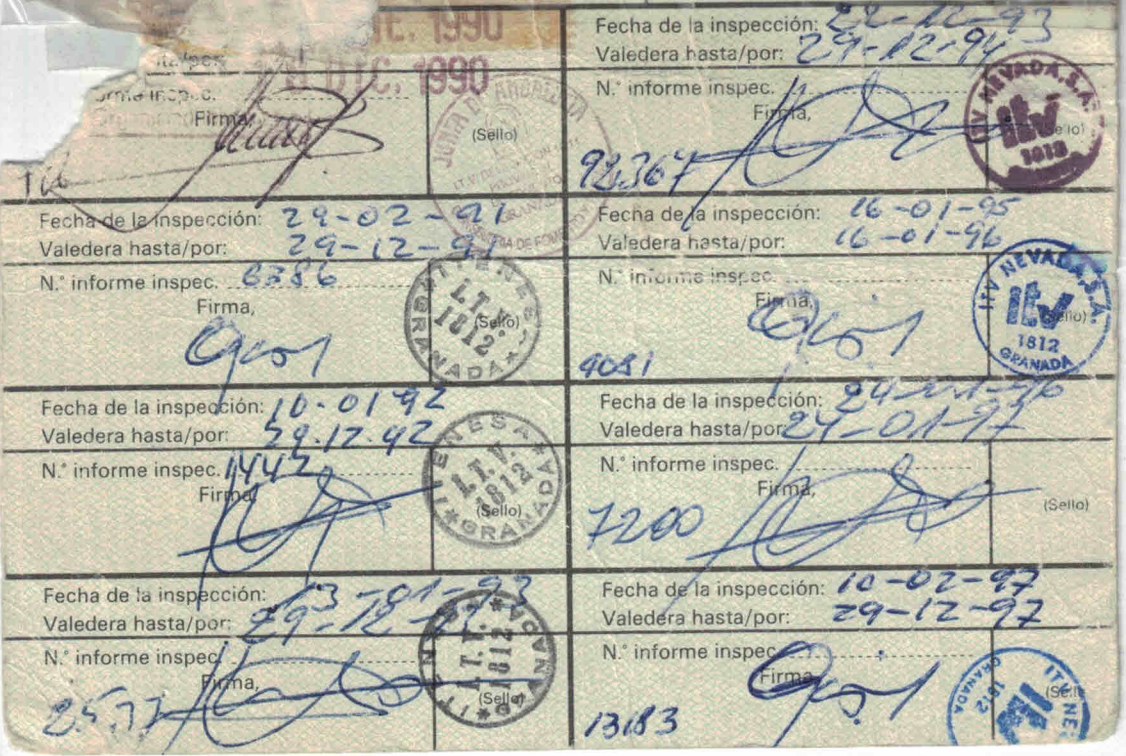 DIC. 1990
DIC. 1990
Firma,
(Sello)
JUNTA DE ANDALUCIA
GRANADA
Fecha de la inspección: 29-02-91
Valedera hasta/por: 29-12-91
N.° informe inspec. 6386
Firma,
(Sello)
ITENESA
I.T.V.
1812
GRANADA
Fecha de la inspección: 10-01-92
Valedera hasta/por: 29-12-92
N.° informe inspec. 1442
Firma,
(Sello)
ITENESA
I.T.V.
1812
GRANADA
Fecha de la inspección: 13-01-93
Valedera hasta/por: 29-12-
N.° informe inspec.
Firma,
(Sello)
I.T.V.
1812
GRANADA
Fecha de la inspección: 22-12-93
Valedera hasta/por: 29-12-94
N.° informe inspec.
Firma,
(Sello)
92.367
ITV NEVADA,S.A.
itv
1812
Fecha de la inspección: 16-01-95
Valedera hasta/por: 16-01-96
N.° informe inspec.
Firma,
(Sello)
4081
ITV NEVADA,S.A.
itv
1812
GRANADA
Fecha de la inspección: 24-01-96
Valedera hasta/por: 24-01-97
N.° informe inspec.
Firma,
(Sello)
7200
Fecha de la inspección: 10-02-97
Valedera hasta/por: 29-12-97
N.° informe inspec.
Firma,
13183
ITV NE
1812
GRANADA